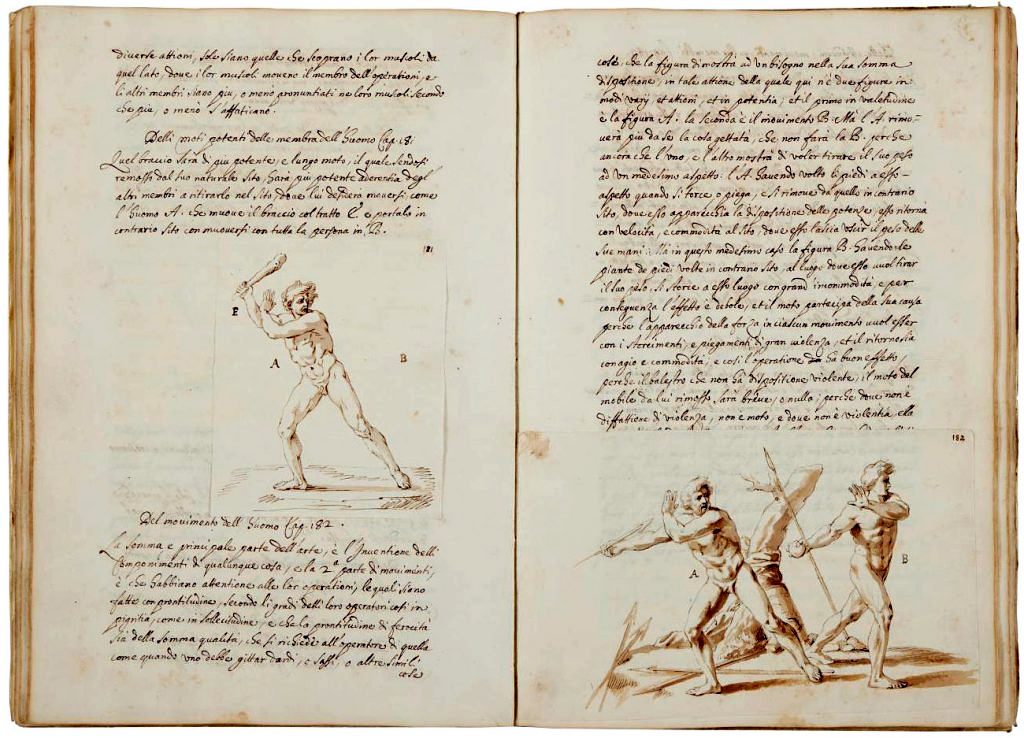 diverse attioni, sole siano quelle che scoprano i lor muscoli da
quel lato, dove i lor muscoli moveno il membro dell'operationi, e
li altri membri siano più, o meno pronuntiati ne loro muscoli secondo
che più, o meno s'affaticano.
Delli moti potenti delle membra dell'huomo Cap. 181
Quel braccio sarà di più potente, e lungo moto, il quale sendosi
remosso dal suo naturale sito, harà più potente aderentia degl'
altri membri a ritirarlo nel sito, dove lui desidera muoversi; come
l'huomo A. che muove il braccio col tratto E. e portalo in
contrario sito con muoversi con tutta la persona in B.
181
E
A
B
Del movimento dell'huomo Cap. 182.
La somma e principale parte dell'arte, è l'Inventione delli
Componimenti di qualunque cosa, e la 2ª parte di movimenti,
è che habbiano attentione alle lor operationi, le quali siano
fatte con prontitudine, secondo li gradi delli loro operatori così in
pigritia, come in sollecitudine, e che la prontitudine di ferocità
sia della somma qualità, che si richiede all'operatore di quella
come quando uno debbe gittar dardi, o sassi, o altre simili
cose
cose, che la figura dimostrà ad un bisogno nella sua somma
dispositione, in tale attione della quale qui n'è due figure in
modi varÿ, et attioni, et in potentia, et il primo in valetudine
è la figura A. la seconda è il movimento B. Mà l'A. rimo-
verà più da se la cosa gettatà, che non farà la B. perche
ancora che l'uno, e l'altro mostrà di voler tirare il suo peso
ad un medesimo aspetto: l'A. havendo volto li piedi a esso
aspetto quando si torce o piega, e si rimove da quello in contrario
sito, dove esso apparecchia la dispositione delle potenze, esso ritorna
con velocità, e commodità al sito, dove esso lascia uscir il peso delle
sue mani. Mà in questo medesimo caso la figura B. havendo le
piante de piedi volte in contrario sito, al luogo dove esso vuol tirar
il suo peso, si storce a esso luogo con grand'incommodità, e per
conseguenza l'effetto è debole, et il moto partecipa della sua causa
perche l'apparecchio della forza in ciascun movimento vuol esser
con istorcimenti, e piegamenti di gran violenza, et il ritorno sia
con agio e commodità, e così l'operatione ha buon effetto,
perche il balestro che non hà dispositione violente, il moto del
mobile da lui rimosso sarà breve, o nulla; perche dove non è
disfattione di violenza, non è moto, e dove non è violentia ella
182
A
B